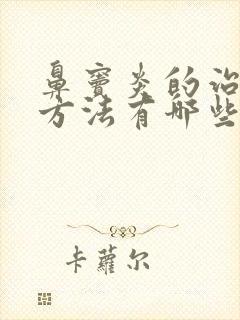 鼻窦炎的治
方法有哪些
卡蘿尔